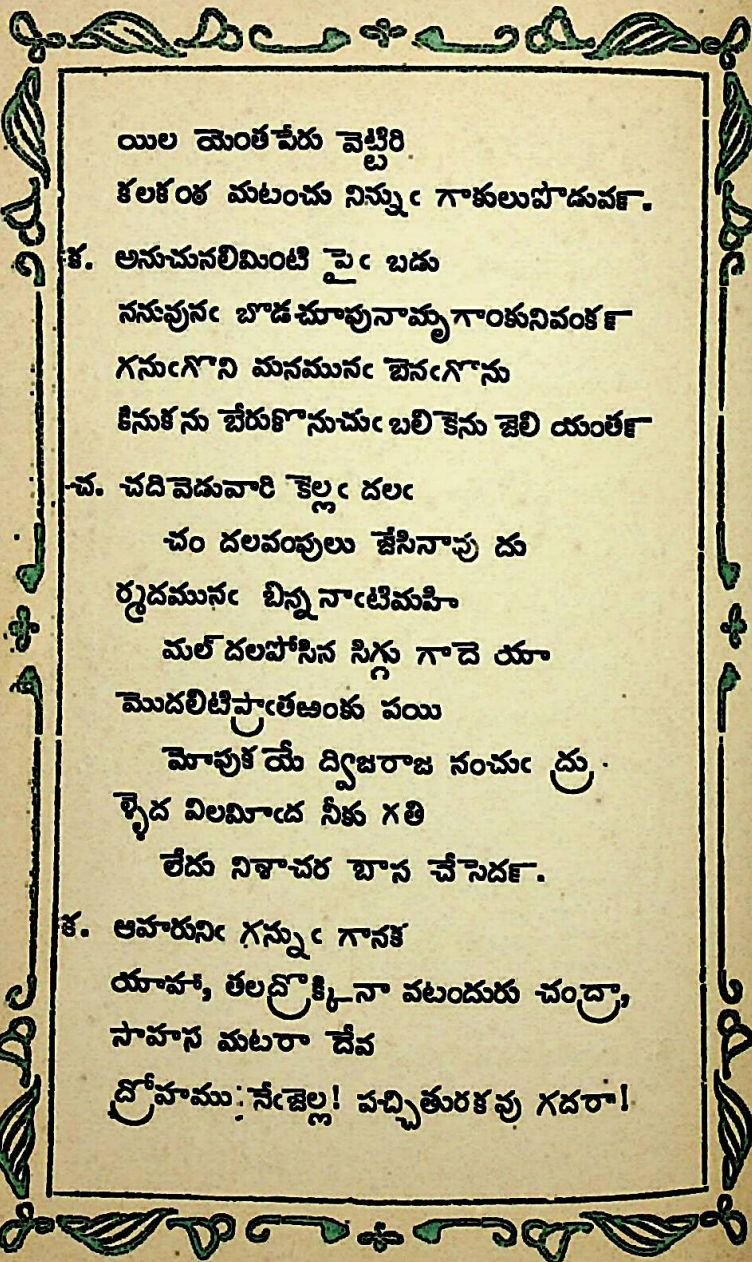 యిల యెంతపేరు వెట్టిరి
కలకంఠ మటంచు నిన్నుఁ గాకులుపొడువన్.
క. అనుచునలిమింటి పైఁ బడు
ననువునఁ బొడచూపునామృగాంకునివంకన్
గనుఁగొని మనమునఁ బెనఁగొను
కినుకను బేరుకొనుచుఁ బలికెను జెలి యంతన్
చ. చదివెడువారి కెల్లఁ దలఁ
చం దలవంపులు జేసినావు దు
ర్మదమునఁ బిన్ననాఁటిమహి
మల్ దలపోసిన సిగ్గు గాదె యా
మొదలిటిప్రాఁతఱంకు పయి
మోపుకయే ద్విజరాజ నంచుఁ ద్రు
ళ్ళెద విలమీఁద నీకు గతి
లేదు నిశాచర బాస చేసెదన్.
క. ఆహరునిఁ గన్నుఁ గానక
యాహా, తలద్రొక్కినా వటందురు చంద్రా,
సాహస మటరా దేవ
ద్రోహము నేఁజెల్ల! పచ్చితురకవు గదరా!